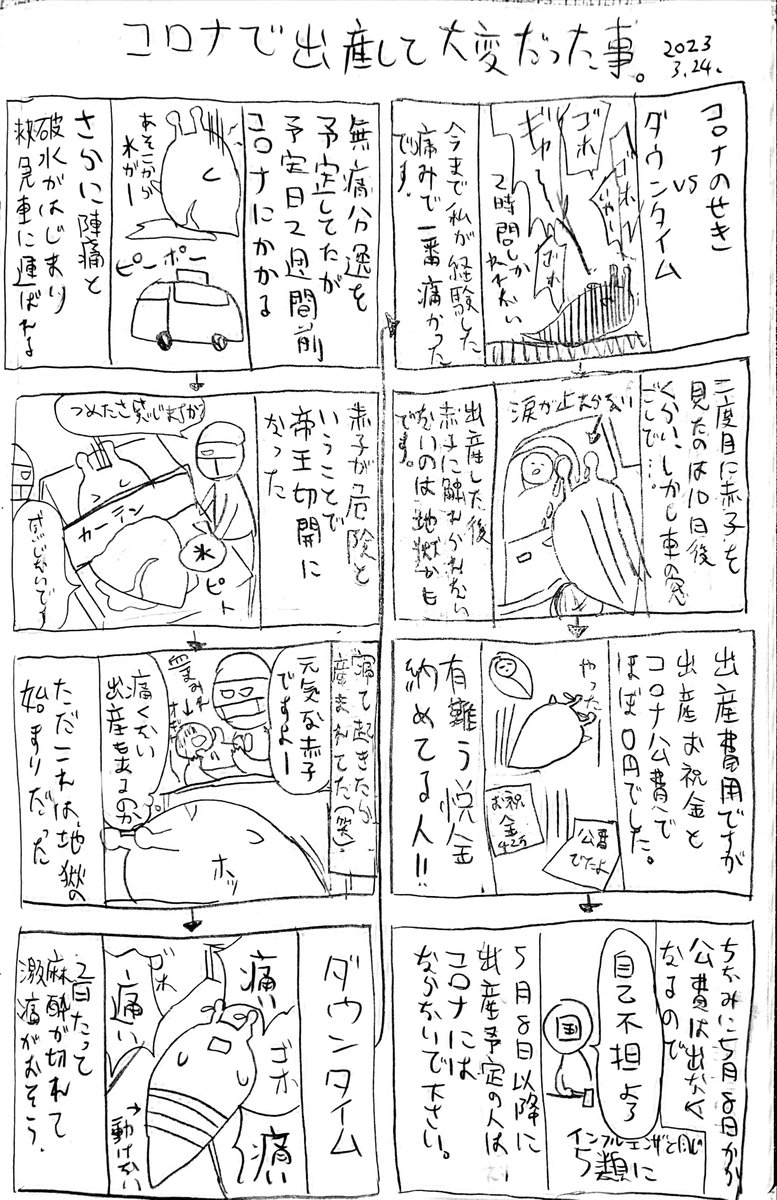 コロナで出産して大変だった事。
2023
3.24.
無痛分逸を
予定してたが
予定日2週間前
コロナにかかる
あそこから
水がー
ピーポー
さらに陣痛と
破水がはじまり
救急車に運ばれる
赤子が危険と
いうことで
帝王切開に
なった
つめたさ感じますか
カーテン
氷
ピト
感じないです
寝て起きたら
産まれてた(笑)。
元気な赤子
ですよー
血まみれ
おぎゃ
痛くない
出産もあるのか
ホッ
ただこれは地獄の
始まりだった
ダウンタイム
痛い
ゴホ
痛い
ゴホ
痛い
→動けない
2日たって
麻酔が切れて
激痛がおそう.
コロナのせき
vs
ダウンタイム
ゴホ
いやー
ゴホ
ギャー
ゴホ
2時間しか
ねれない
今まで私が経験した
痛みで一番痛かった
です。
二度目に赤子を
見たのは10日後
くらい、しかし車の窓
ごしで…。
涙が止まらない
出産した後
赤子に触れられない
ないのは地獄かも
です。
出産費用ですが
出産お祝金と
コロナ公費で
ほぼ0円でした。
やった
お祝
金
42万
公費
でたよ
有難う悦金
納めてる人!!
ちなみに5月8日から
公費は出なく
なるので
自己不担よろ
国
インフルエンザと同じ
5類に
5月8日以降に
出産予定の人は
コロナには
ならないで下さい。